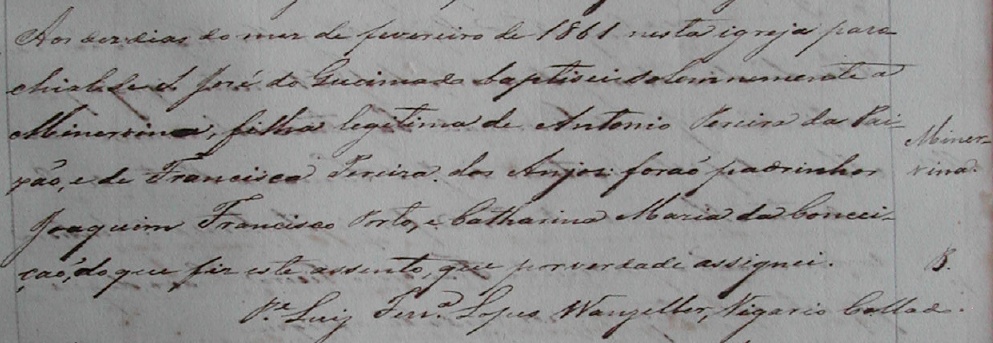 Aos dez dias do mez de fevereiro de 1861 nesta igreja paro-
chial de S. José do Queimado baptisei solemnemente a
Minervina, filha legitima de Antonio Pereira da Pai-
xão, e de Francisca Pereira dos Anjos: forão padrinhos
Joaquim Francisco Porto, e Catharina Maria da Concei-
ção, do que fiz este assento, que por verdade assignei.
Pe. Luiz Fern.do Lopes Wanzeller, Vigario Collado.
Miner-
vina.
B.